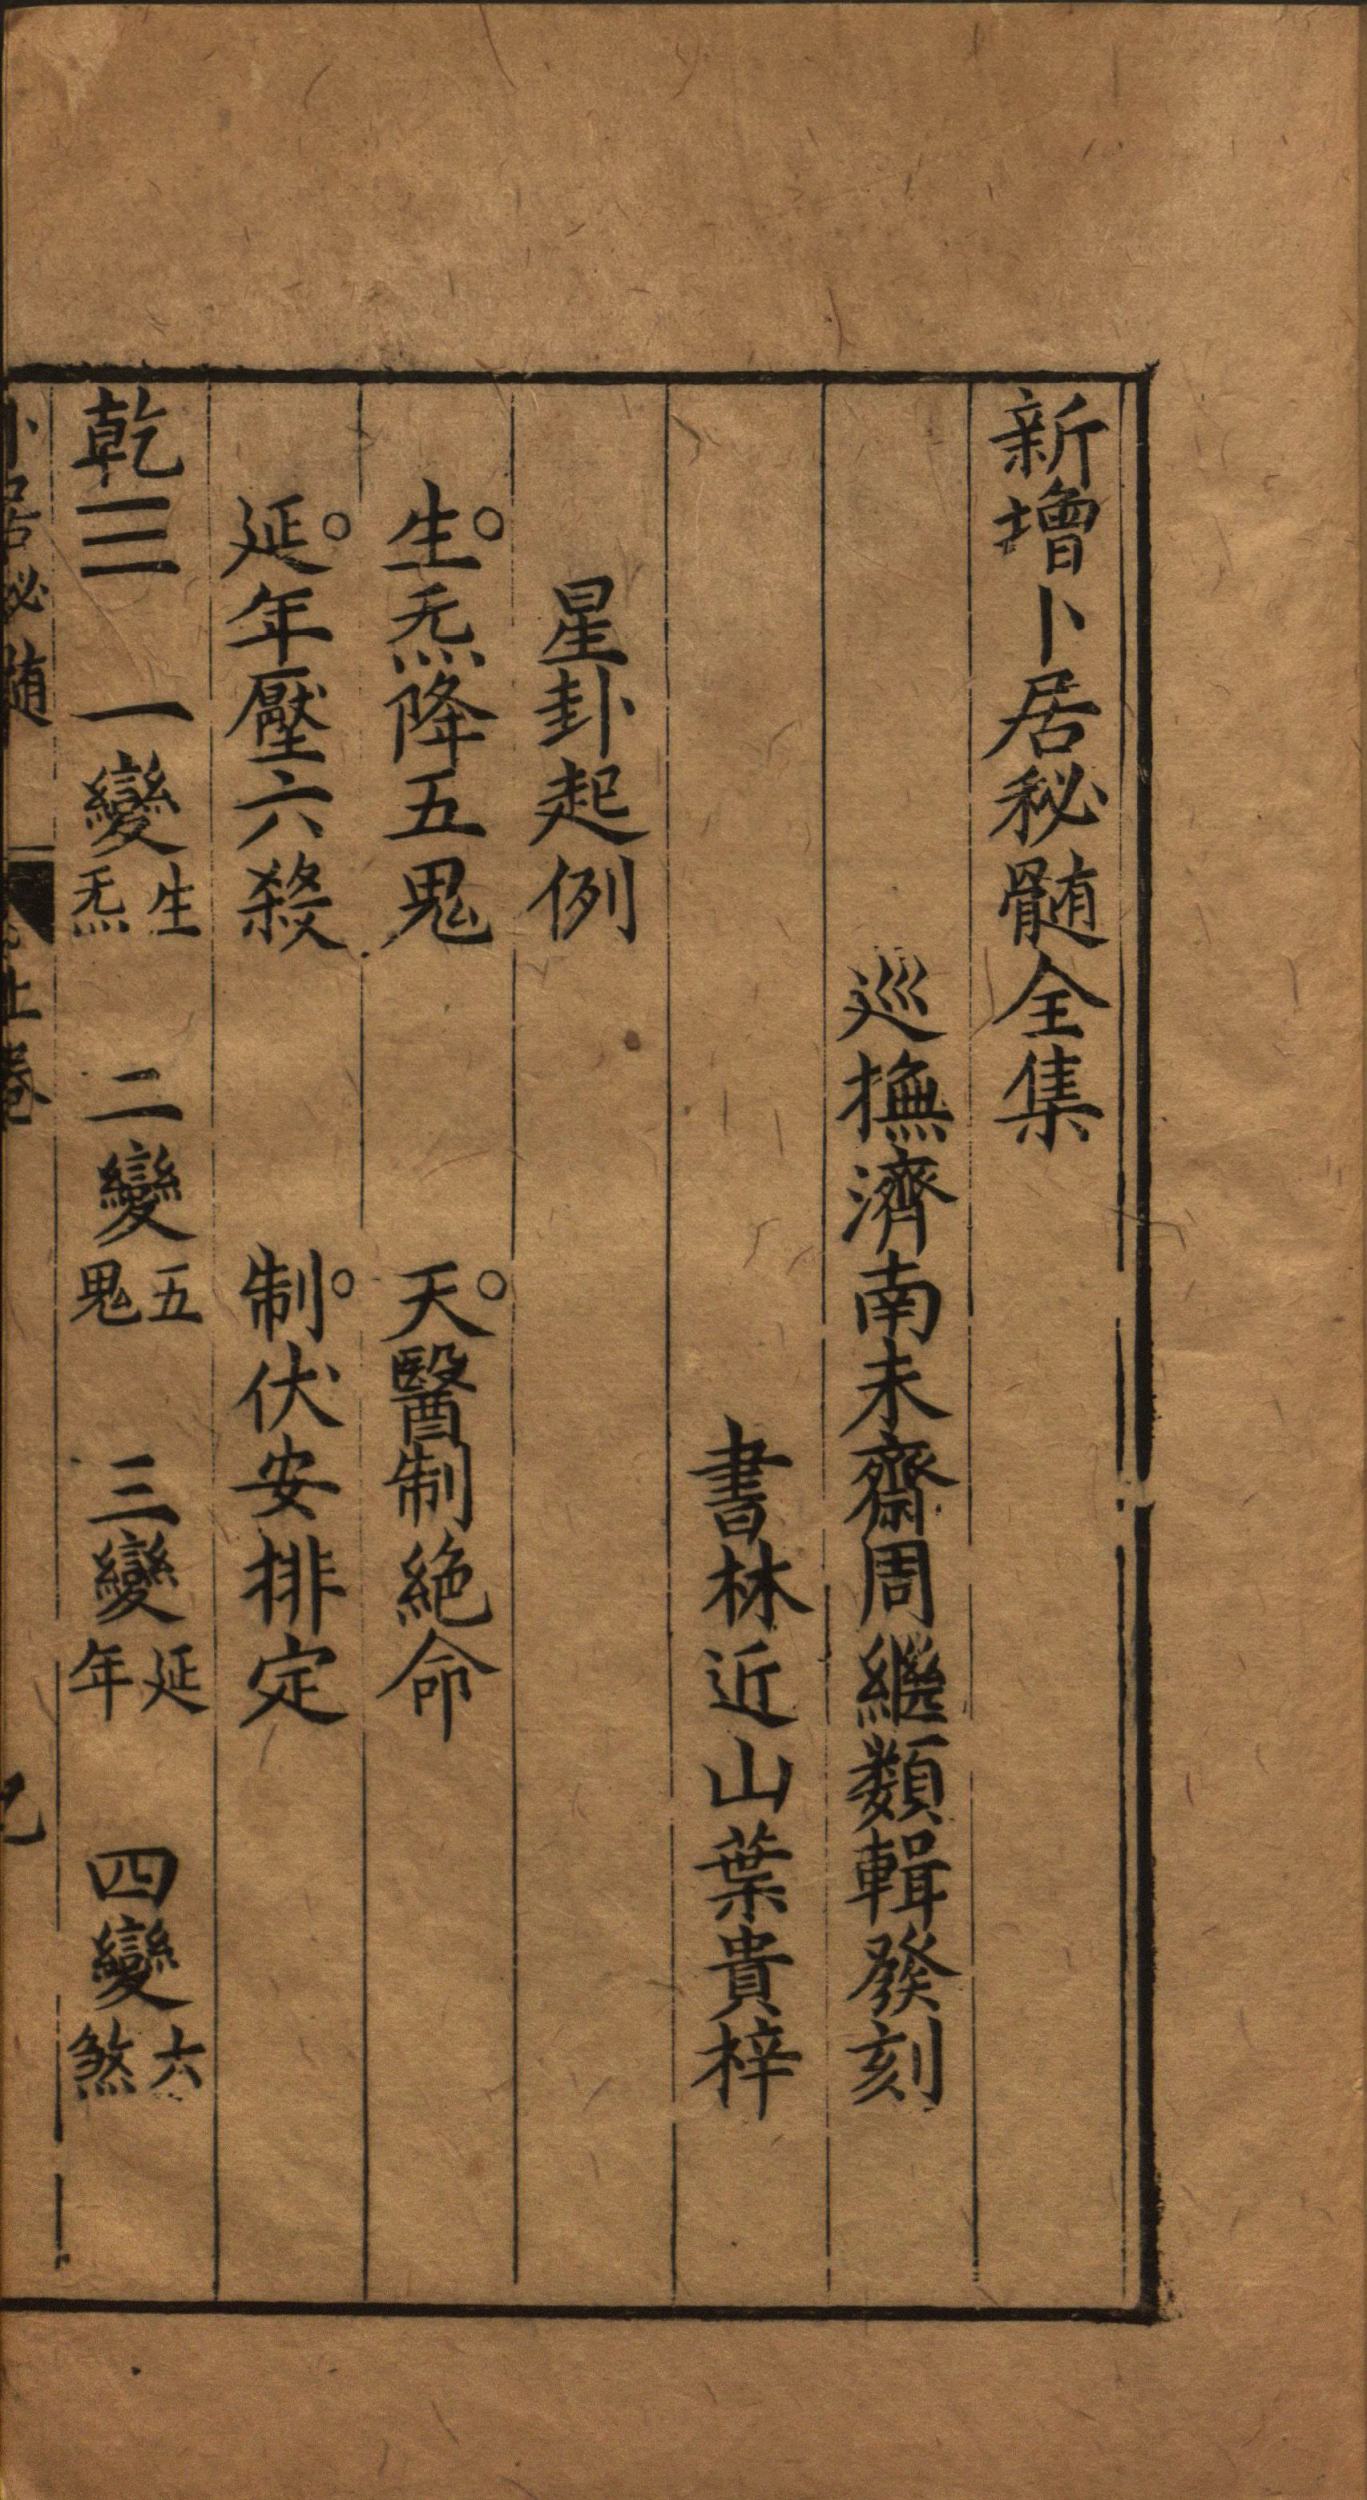 新增卜居秘髓全集
巡撫濟南未齋周繼類輯發刻
書林近山葉貴梓
星卦起例
生炁降五鬼　天醫制絕命
延年壓六殺　制伏安排定
乾☰ 一變生炁 二變五鬼 三變延年 四變六煞
卜居秘髓 上卷